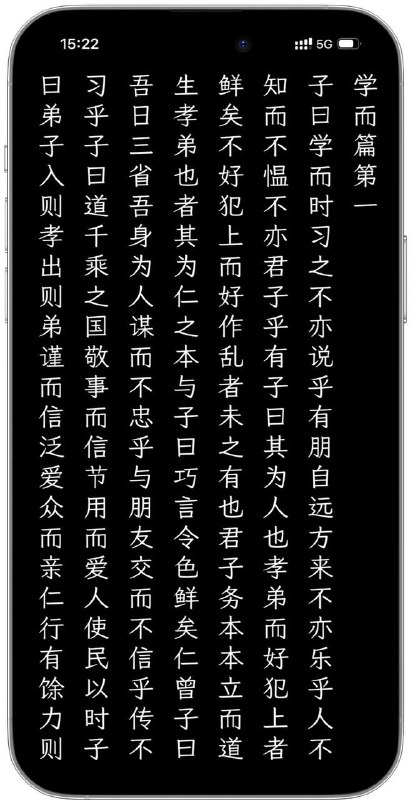 15:22
5G
学而篇第一
子曰学而时习之不亦说乎有朋自远方来不亦乐乎人不
知而不愠不亦君子乎有子曰其为人也孝弟而好犯上者
鲜矣不好犯上而好作乱者未之有也君子务本本立而道
生孝弟也者其为仁之本与子曰巧言令色鲜矣仁曾子曰
吾日三省吾身为人谋而不忠乎与朋友交而不信乎传不
习乎子曰道千乘之国敬事而信节用而爱人使民以时子
曰弟子入则孝出则弟谨而信泛爱众而亲仁行有馀力则